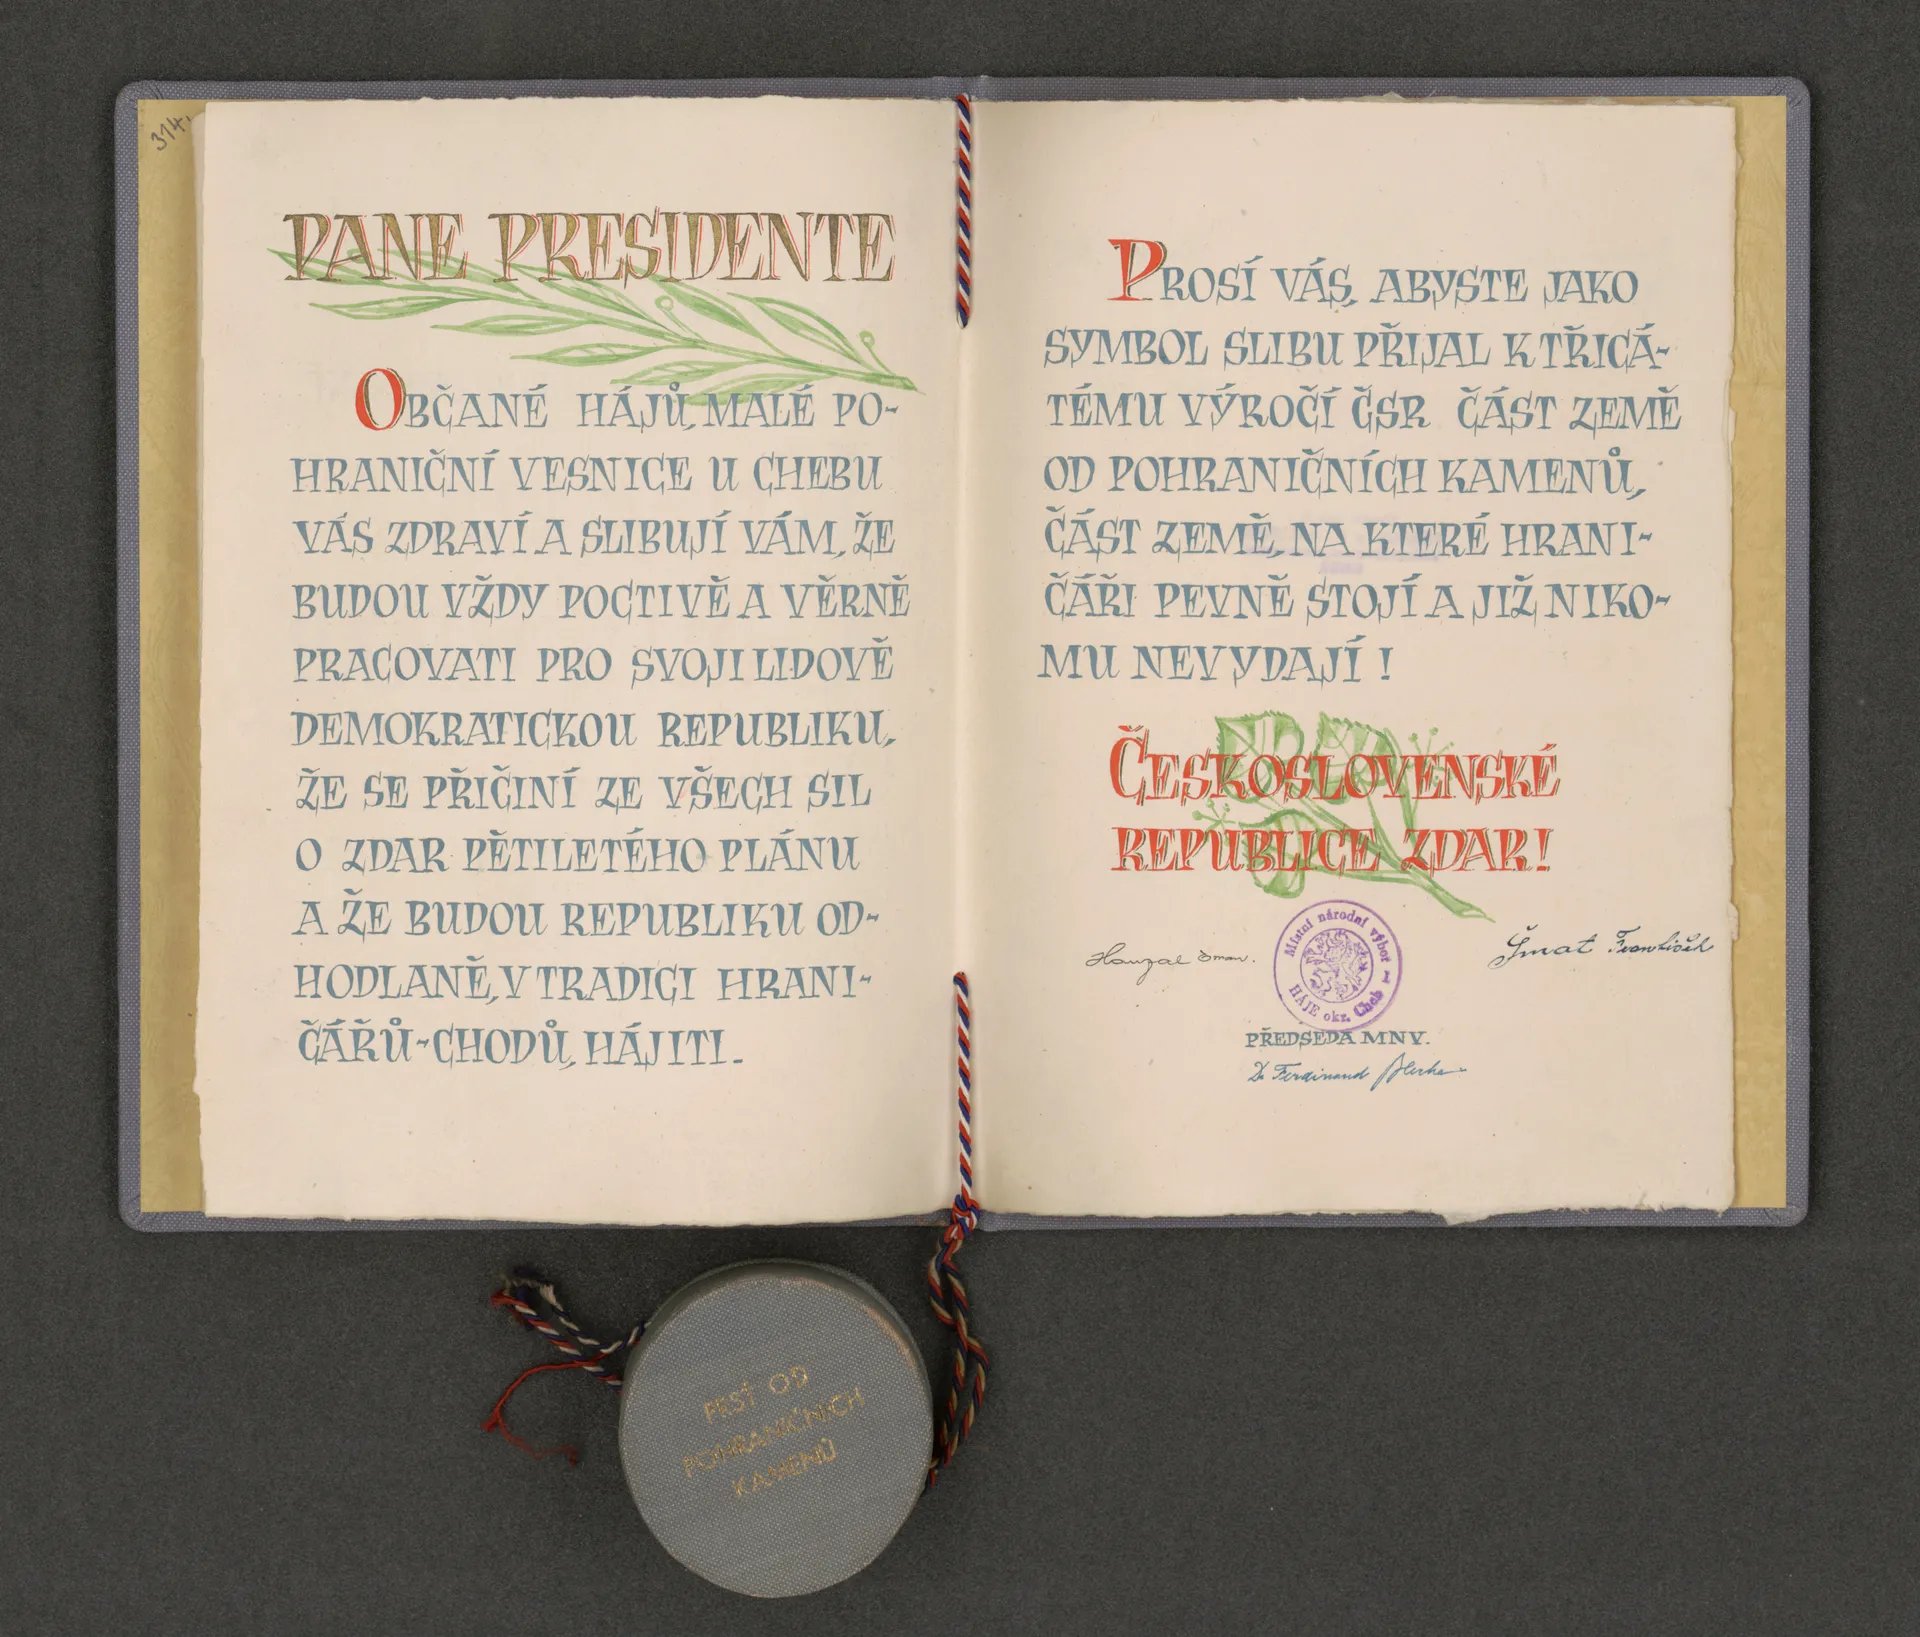 314.
PANE PRESIDENTE
OBČANÉ HÁJŮ, MALÉ PO-
HRANIČNÍ VESNICE U CHEBU
VÁS ZDRAVÍ A SLIBUJÍ VÁM, ŽE
BUDOU VŽDY POCTIVĚ A VĚRNĚ
PRACOVATI PRO SVOJI LIDOVĚ
DEMOKRATICKOU REPUBLIKU,
ŽE SE PŘIČINÍ ZE VŠECH SIL
O ZDAR PĚTILETÉHO PLÁNU
A ŽE BUDOU REPUBLIKU OD-
HODLANĚ, V TRADICI HRANI-
ČÁŘŮ-CHODŮ, HÁJITI.
PROSÍ VÁS, ABYSTE JAKO
SYMBOL SLIBU PŘIJAL K TŘICÁ-
TÉMU VÝROČÍ ČSR ČÁST ZEMĚ
OD POHRANIČNÍCH KAMENŮ,
ČÁST ZEMĚ, NA KTERÉ HRANI-
ČÁŘI PEVNĚ STOJÍ A JIŽ NIKO-
MU NEVYDAJÍ!
ČESKOSLOVENSKÉ
REPUBLICE ZDAR!
Místní národní výbor
HÁJE okr. Cheb
František
PŘEDSEDA MNV.
Dr Ferdinand
PRSŤ OD
POHRANIČNÍCH
KAMENŮ